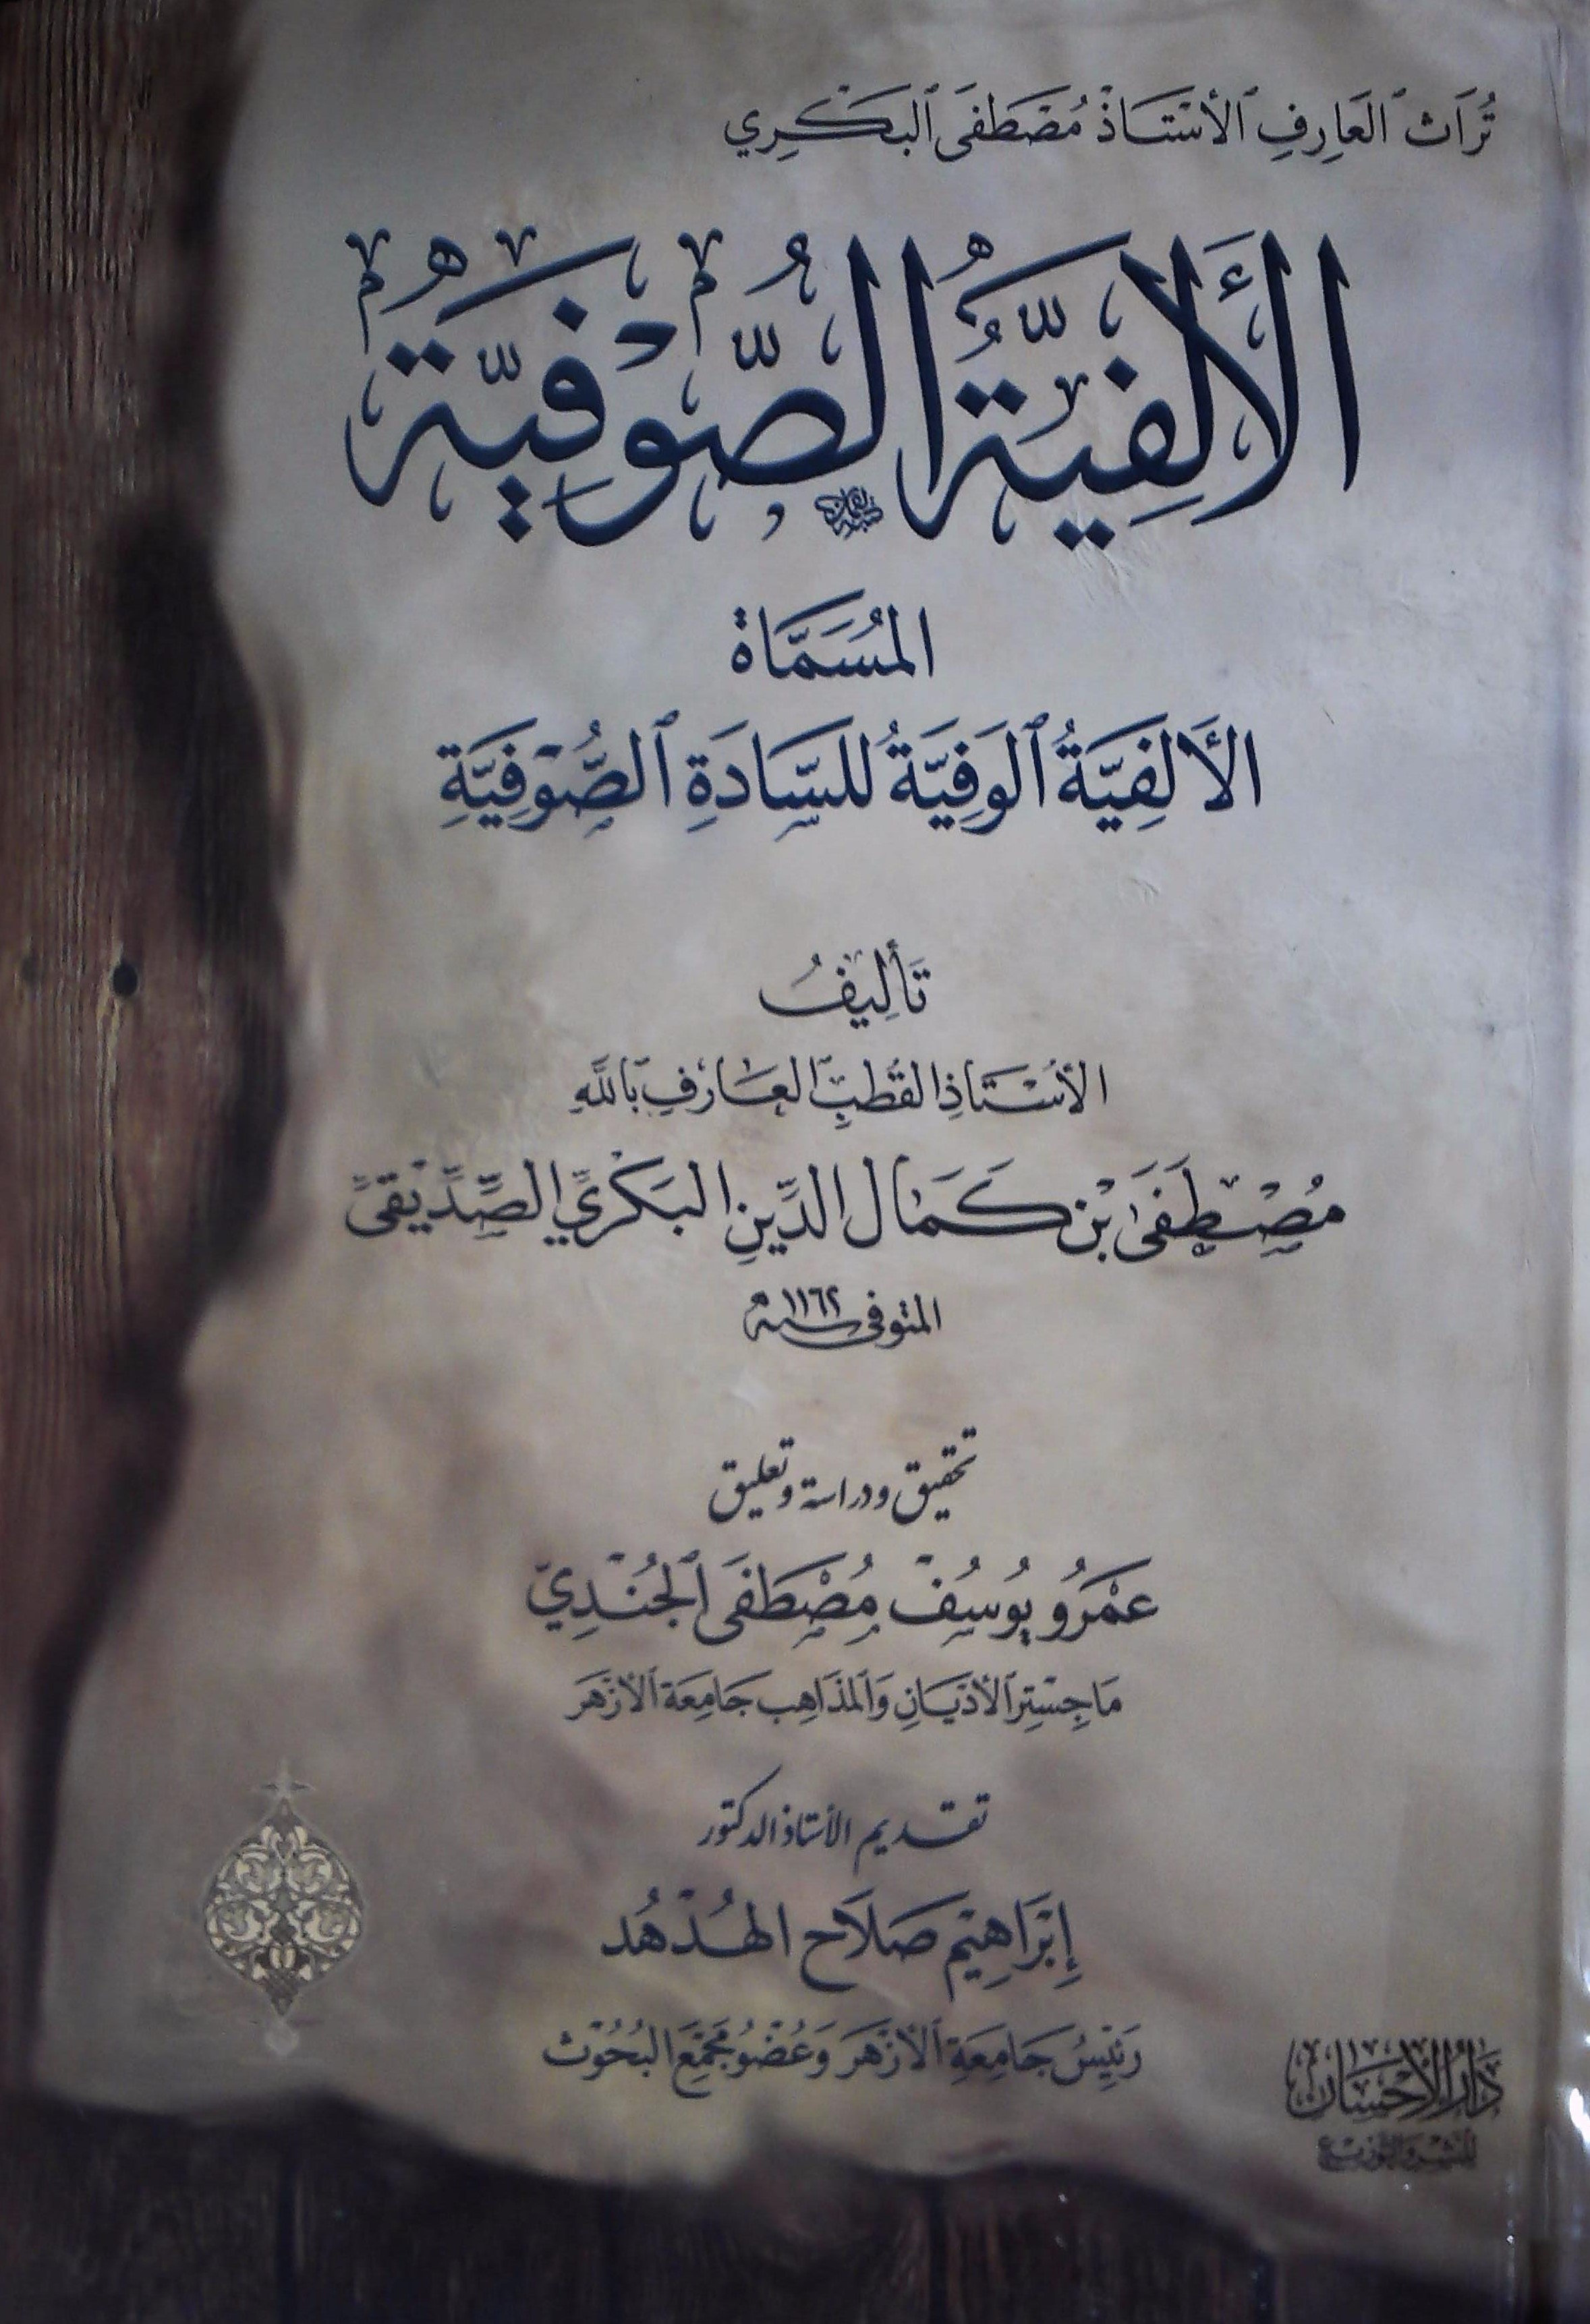 تُرَاثُ العَارِفِ الأُسْتَاذْ مُصْطَفَى البَكْرِي
الأَلْفِيَّةُ الصُّوفِيَّةُ
المُسَمَّاةُ
الأَلْفِيَّةُ الوَفِيَّةُ للسَّادَةِ الصُّوْفِيَّةِ
تَأْلِيفُ
الأُسْتَاذِ القُطْبِ العَارِفِ بِاللَّهِ
مُصْطَفَى بْن كَمَال الدِّينِ البَكْرِيِّ الصِّدِّيْقِيِّ
المتوفى سنة ١١٦٢ھ
تحقيق ودراسة وتعليق
عَمْرُو يُوسُفْ مُصْطَفَى الجُنْدِيّ
مَاجِسْتِر الأَدْيَانِ وَالمَذَاهِب جَامِعَة الأَزْهَر
تقديم الأستاذ الدكتور
إِبْرَاهِيْم صَلَاح الهُدْهُد
رَئِيْسُ جَامِعَةِ الأَزْهَر وَعُضْوُ مَجْمَعِ البُحُوْث
دَارُ الإِحْسَان
للنشر والتوزيع